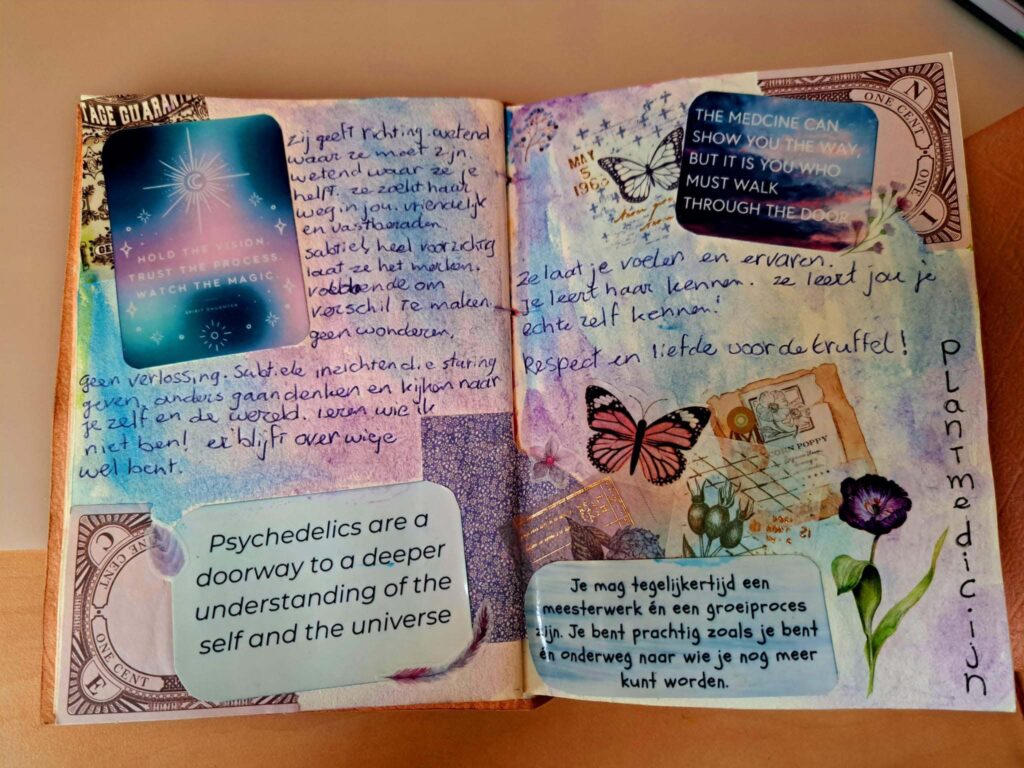 TAGE GUARANT
HOLD THE VISION.
TRUST THE PROCESS.
WATCH THE MAGIC.
SPIRIT DAUGHTER
zij geeft richting. wetend
waar ze moet zijn.
wetend waar ze je
helft. ze zoekt haar
weg in jou. vriendelijk
en vastberaden.
subtiel, heel voorzichtig
laat ze het merken.
om
verschil te maken.
geen wonderen,
geen verlossing. Subtiele inzichten die sturing
geven, anders gaan denken en kijken naar
je zelf en de wereld. leren wie ik
niet ben! er blijft over wie je
wel bent.
ONE CENT
C
E
Psychedelics are a
doorway to a deeper
understanding of the
self and the universe
MAY
5
196
THE MEDCINE CAN
SHOW YOU THE WAY,
BUT IT IS YOU WHO
MUST WALK
THROUGH THE DOOR
ONE CENT
N
ONE
I
ze laat je voelen en ervaren.
je leert haar kennen. ze leert jou je
echte zelf kennen!
Respect en liefde voor de truffel!
CORN POPPY
Plantmedicijn
Je mag tegelijkertijd een
meesterwerk én een groeiproces
zijn. Je bent prachtig zoals je bent
én onderweg naar wie je nog meer
kunt worden.